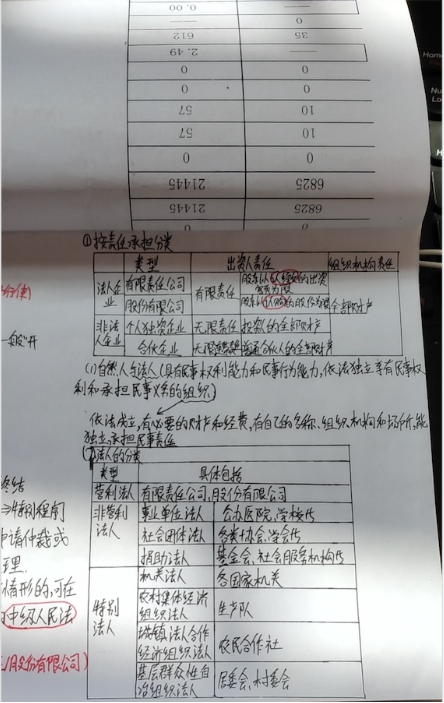 0.00
—
612
35
2.49
—
0
0
0
0
57
10
57
10
0
0
21445
6825
21445
6825
①按责任承担分类
类型 出资人责任 组织机构责任
法人企业 有限责任公司 有限责任 股东以认缴的出资额为限
股份有限公司 股东以认购的股份为限 全部财产
非法人企业 个人独资企业 无限责任 投资人的全部财产
合伙企业 普通合伙人的全部财产
(1)自然人与法人(具有民事权利能力和民事行为能力,依法独立享有民事权
利和承担民事义务的组织)
依法成立,有必要的财产和经费,有自己的名称、组织机构和场所,能
独立承担民事责任
法人的分类
类型 具体包括
营利法人 有限责任公司,股份有限公司
非营利法人 事业单位法人 公办医院,学校等
社会团体法人 各类协会,学会等
捐助法人 基金会,社会服务机构等
特别法人 机关法人 各国家机关
农村集体经济组织法人 生产队
城镇法合作经济组织法人 农民合作社
基层群众性自治组织法人 居委会,村委会
终结
特别程序
申请仲裁或
理
情形的,可在
中级人民法
股份有限公司)